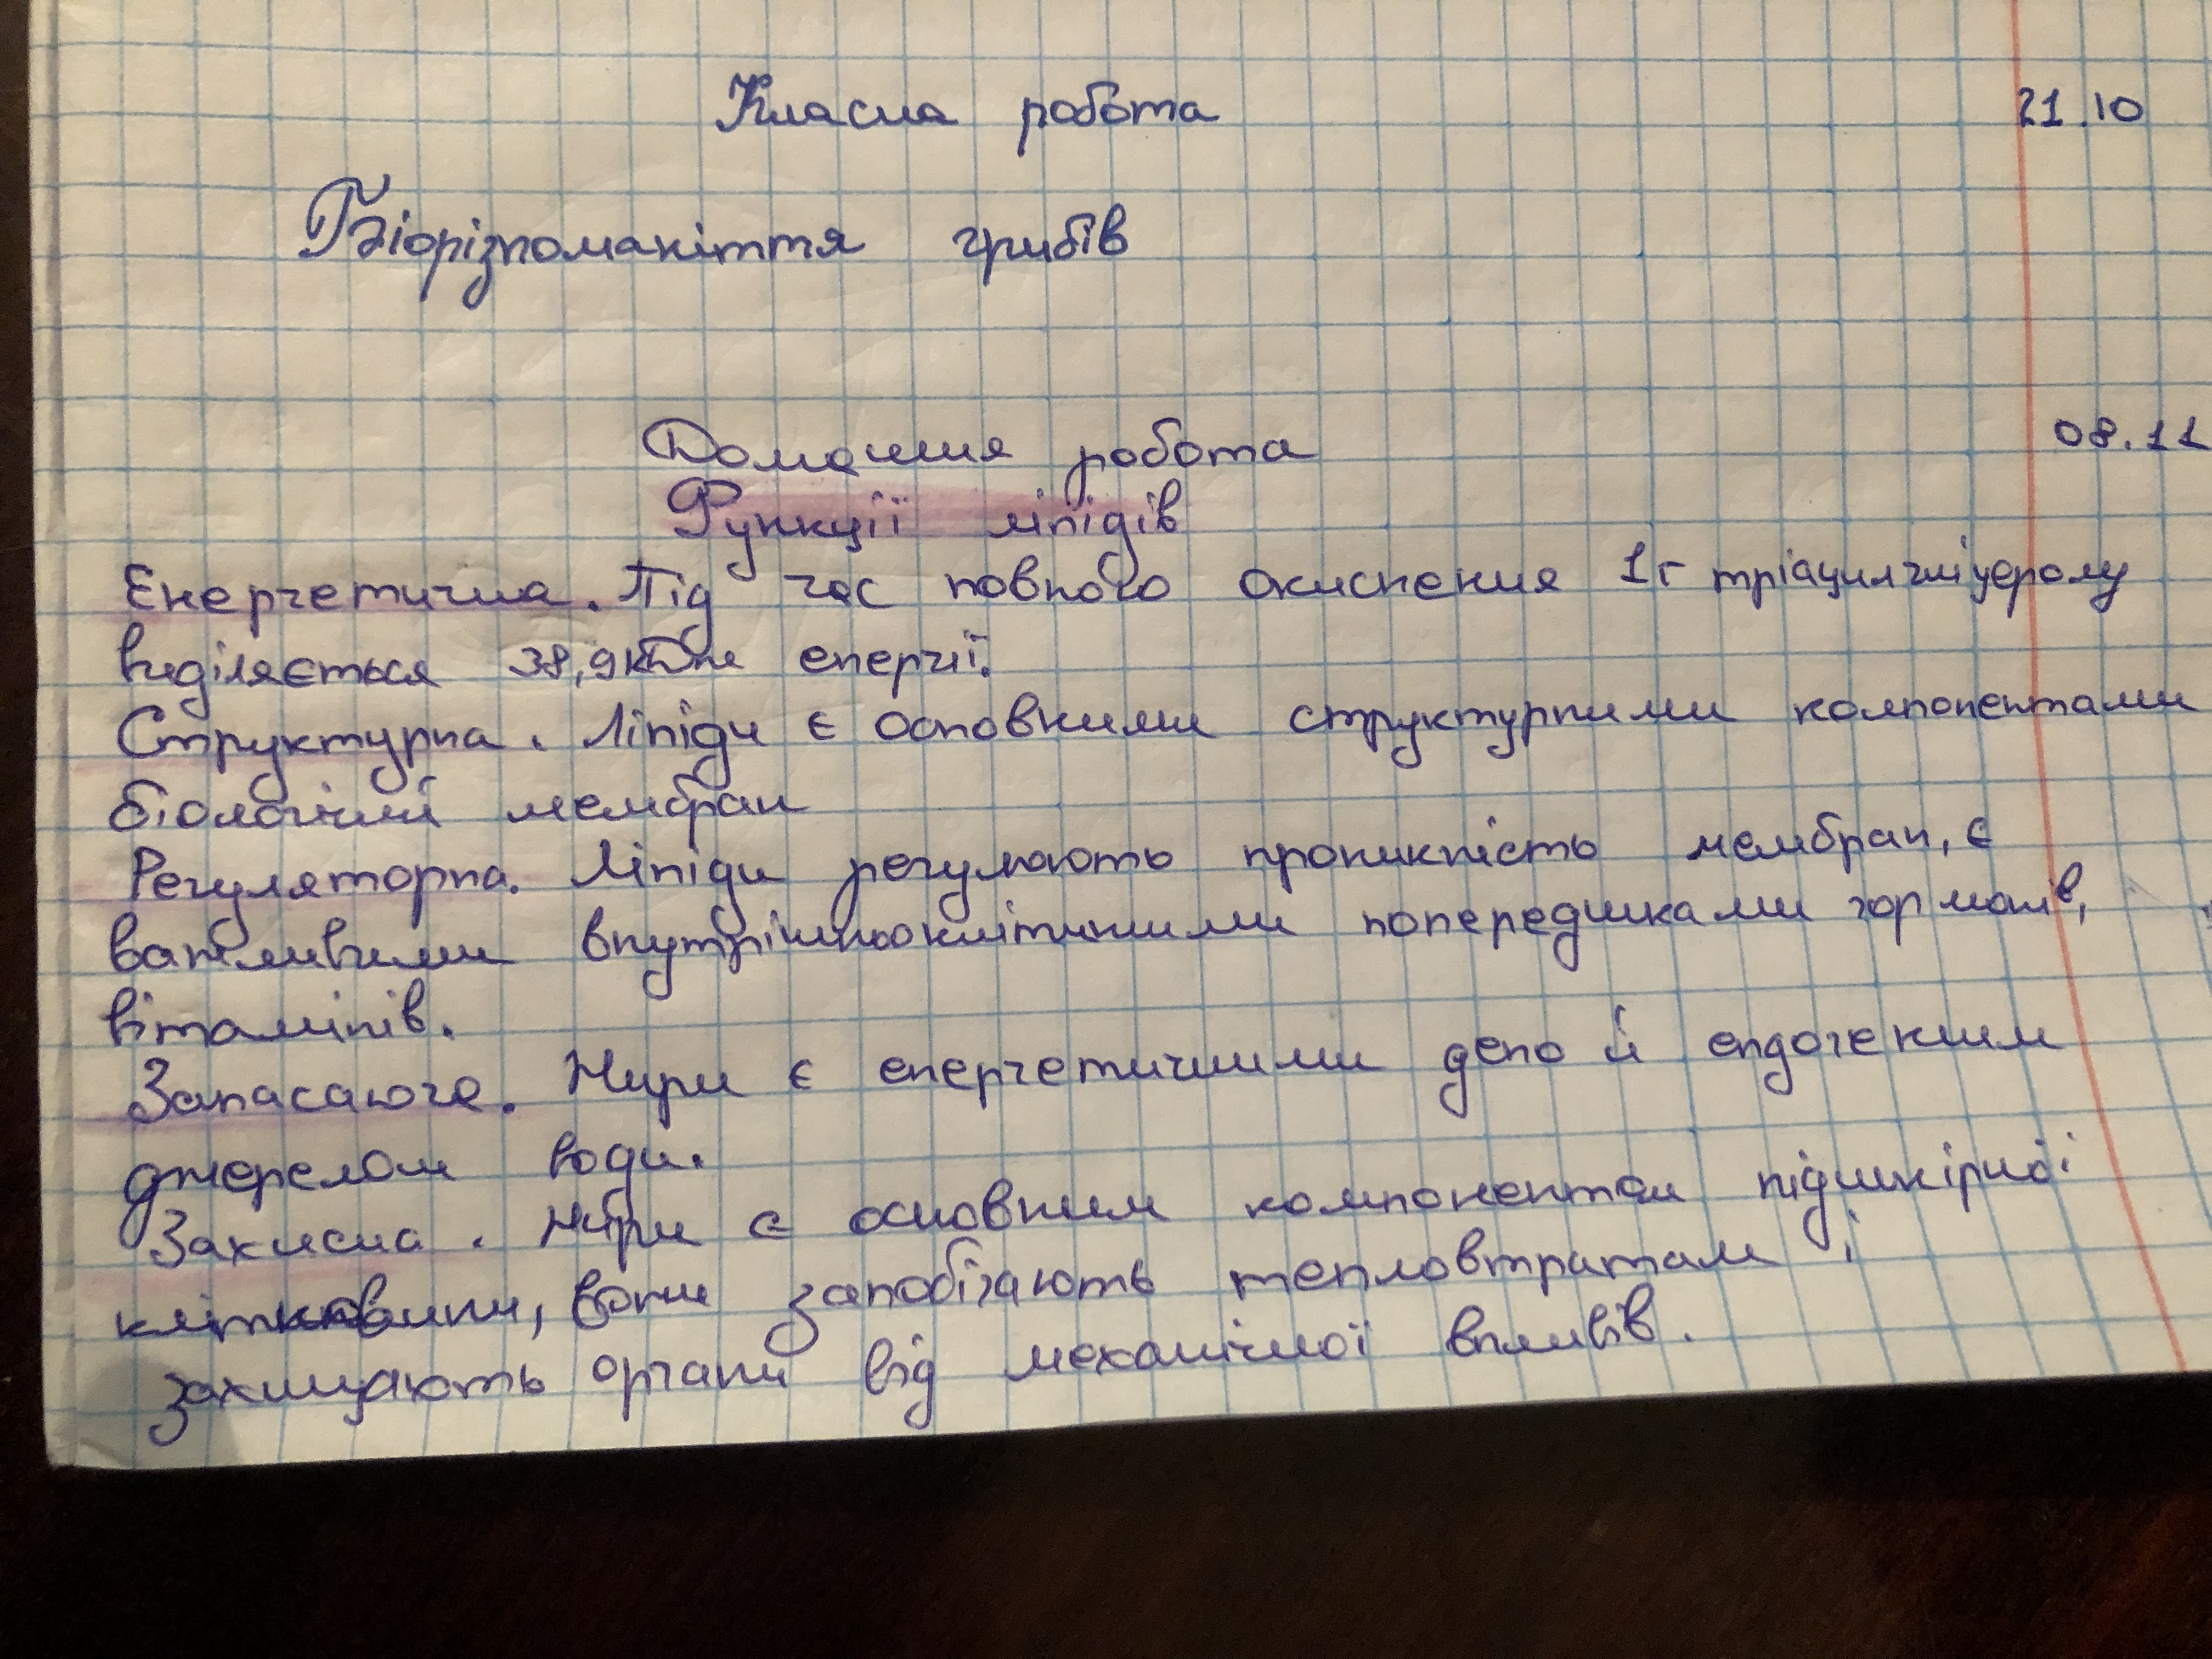 Класна робота 21.10
Біорізноманіття грибів
Домашня робота 08.11
Функції ліпідів
Енергетична. Під час повного окиснення 1г тріацилгліцеролу
виділяється 38,9кДж енергії.
Структурна. Ліпіди є основними структурними компонентами
біологічній мембран
Регуляторна. Ліпіди регулюють проникність мембран, є
важливими внутрішньоклітинними попередниками гормонів,
вітамінів.
Запасаюча. Жири є енергетичними депо й ендогенним
джерелом води.
Захисна. Жири є основним компонентом підшкірної
клітковини, вони запобігають тепловтратам і
захищають органи від механічної впливів.